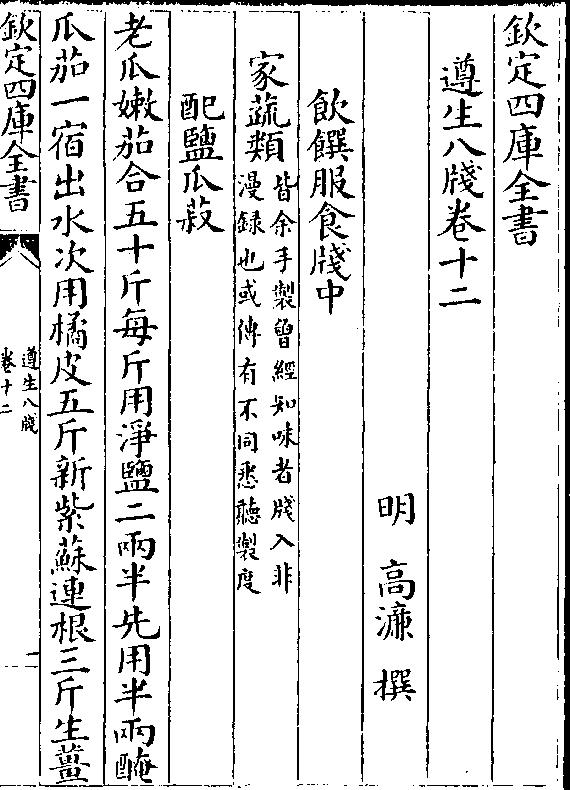 欽定四庫全書
遵生八牋卷十二
明 高濂 撰
飲饌服食牋中
家蔬類
皆余手製曾經知味者牋入非
漫録也或傳有不同悉聽製度
配鹽瓜菽
老瓜嫩茄合五十斤每斤用淨鹽二兩半先用半兩醃
瓜茄一宿出水次用橘皮五斤新紫蘇連根三斤生薑
欽定四庫全書
遵生八牋
卷十二
一